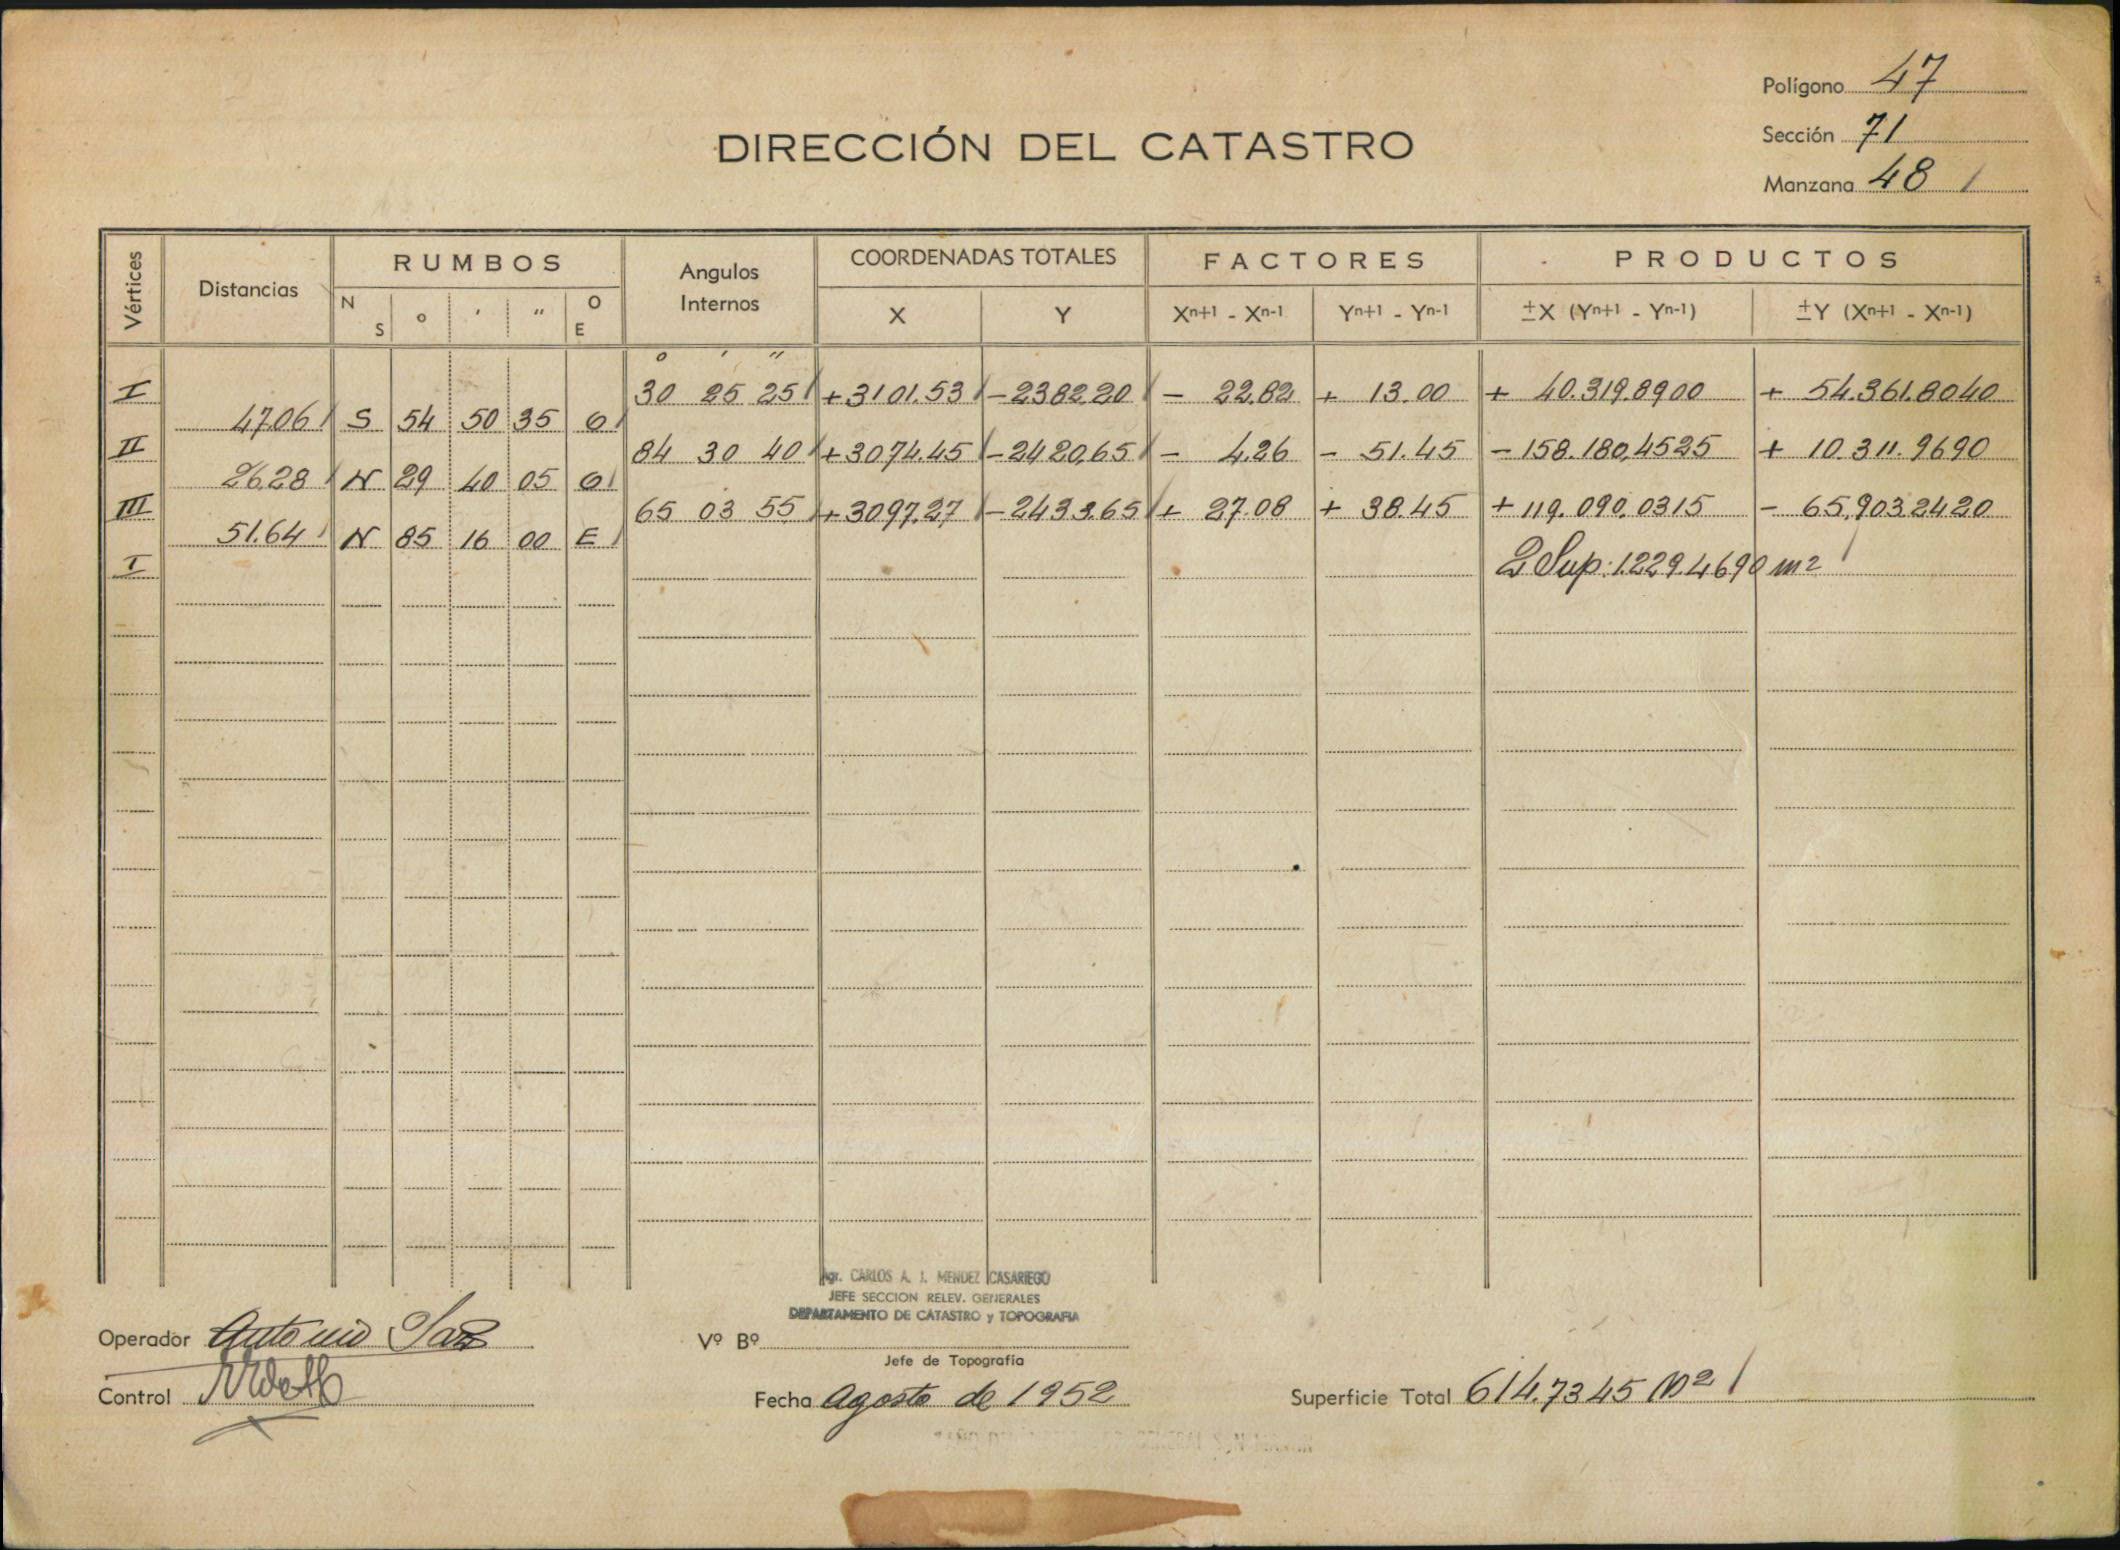 Polígono 47
Sección 71
Manzana 48
DIRECCIÓN DEL CATASTRO
Vértices Distancias RUMBOS Angulos Internos COORDENADAS TOTALES FACTORES PRODUCTOS
N S o ' " O E X Y Xn+1 - Xn-1 Yn+1 - Yn-1 ±X (Yn+1 - Yn-1) ±Y (Xn+1 - Xn-1)
o ' "
I 30 25 25 +3101.53 -2382.20 - 22.82 + 13.00 + 40.319.8900 + 54.361.8040
47.06 S 54 50 35 O
II 84 30 40 +3074.45 -2420.65 - 4.26 - 51.45 -158.180.4525 + 10.311.9690
26.28 N 29 40 05 O
III 65 03 55 +3097.27 -2433.65 + 27.08 + 38.45 +119.090.0315 - 65.903.2420
51.64 N 85 16 00 E
I 2 Sup: 1.229.4690 m2
Agr. CARLOS A. J. MENDEZ CASARIEGO
JEFE SECCION RELEV. GENERALES
DEPARTAMENTO DE CATASTRO y TOPOGRAFIA
Operador Antonio
Vº Bº
Jefe de Topografía
Control
Fecha Agosto de 1952
Superficie Total 614.7345 m2